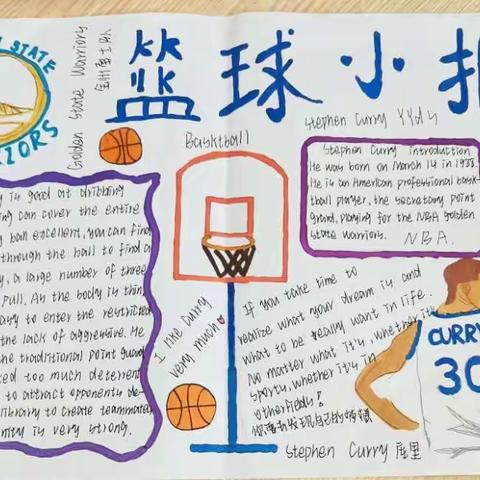 STATE
Golden State Warriors
金州勇士队
篮球小报
Stephen Curry YYds
Basktball
Stephen Curry introduction
He was born on March 14 in 1988.
He is an American professional bask-
tball player, the secretary point
guard, playing for the NBA Golden
State Warriors. NBA.
is good at dribbling
can cover the entire
ball excellent, you can find
through the ball to find a
a large number of three
pull. As the body is thin
easy to enter the restricted
the lack of aggressive. He
the traditional point guard
too much deterrent
to attract opponents de-
library to create teammates
is very strong.
I like Curry
very much
If you take time to
realize what your dream is and
what to be really want in life.
No matter what it's, whether it's
sporty, whether it's in
otherfields!
Stephen Curry 库里
CURRY
30